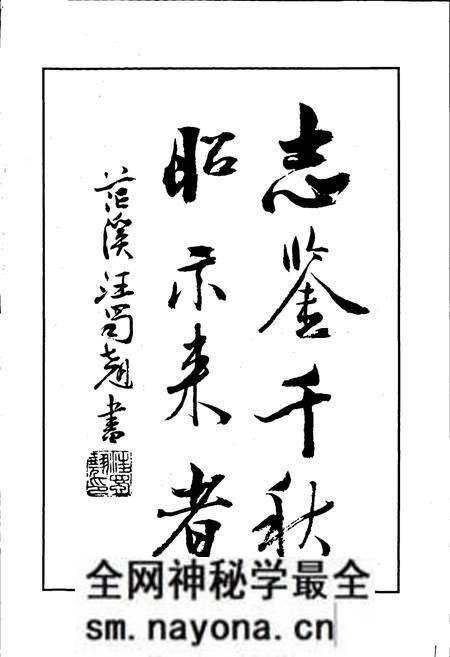 志鉴千秋
昭示来者
茫溪汪蜀翘书
全网神秘学最全
sm.nayona.cn